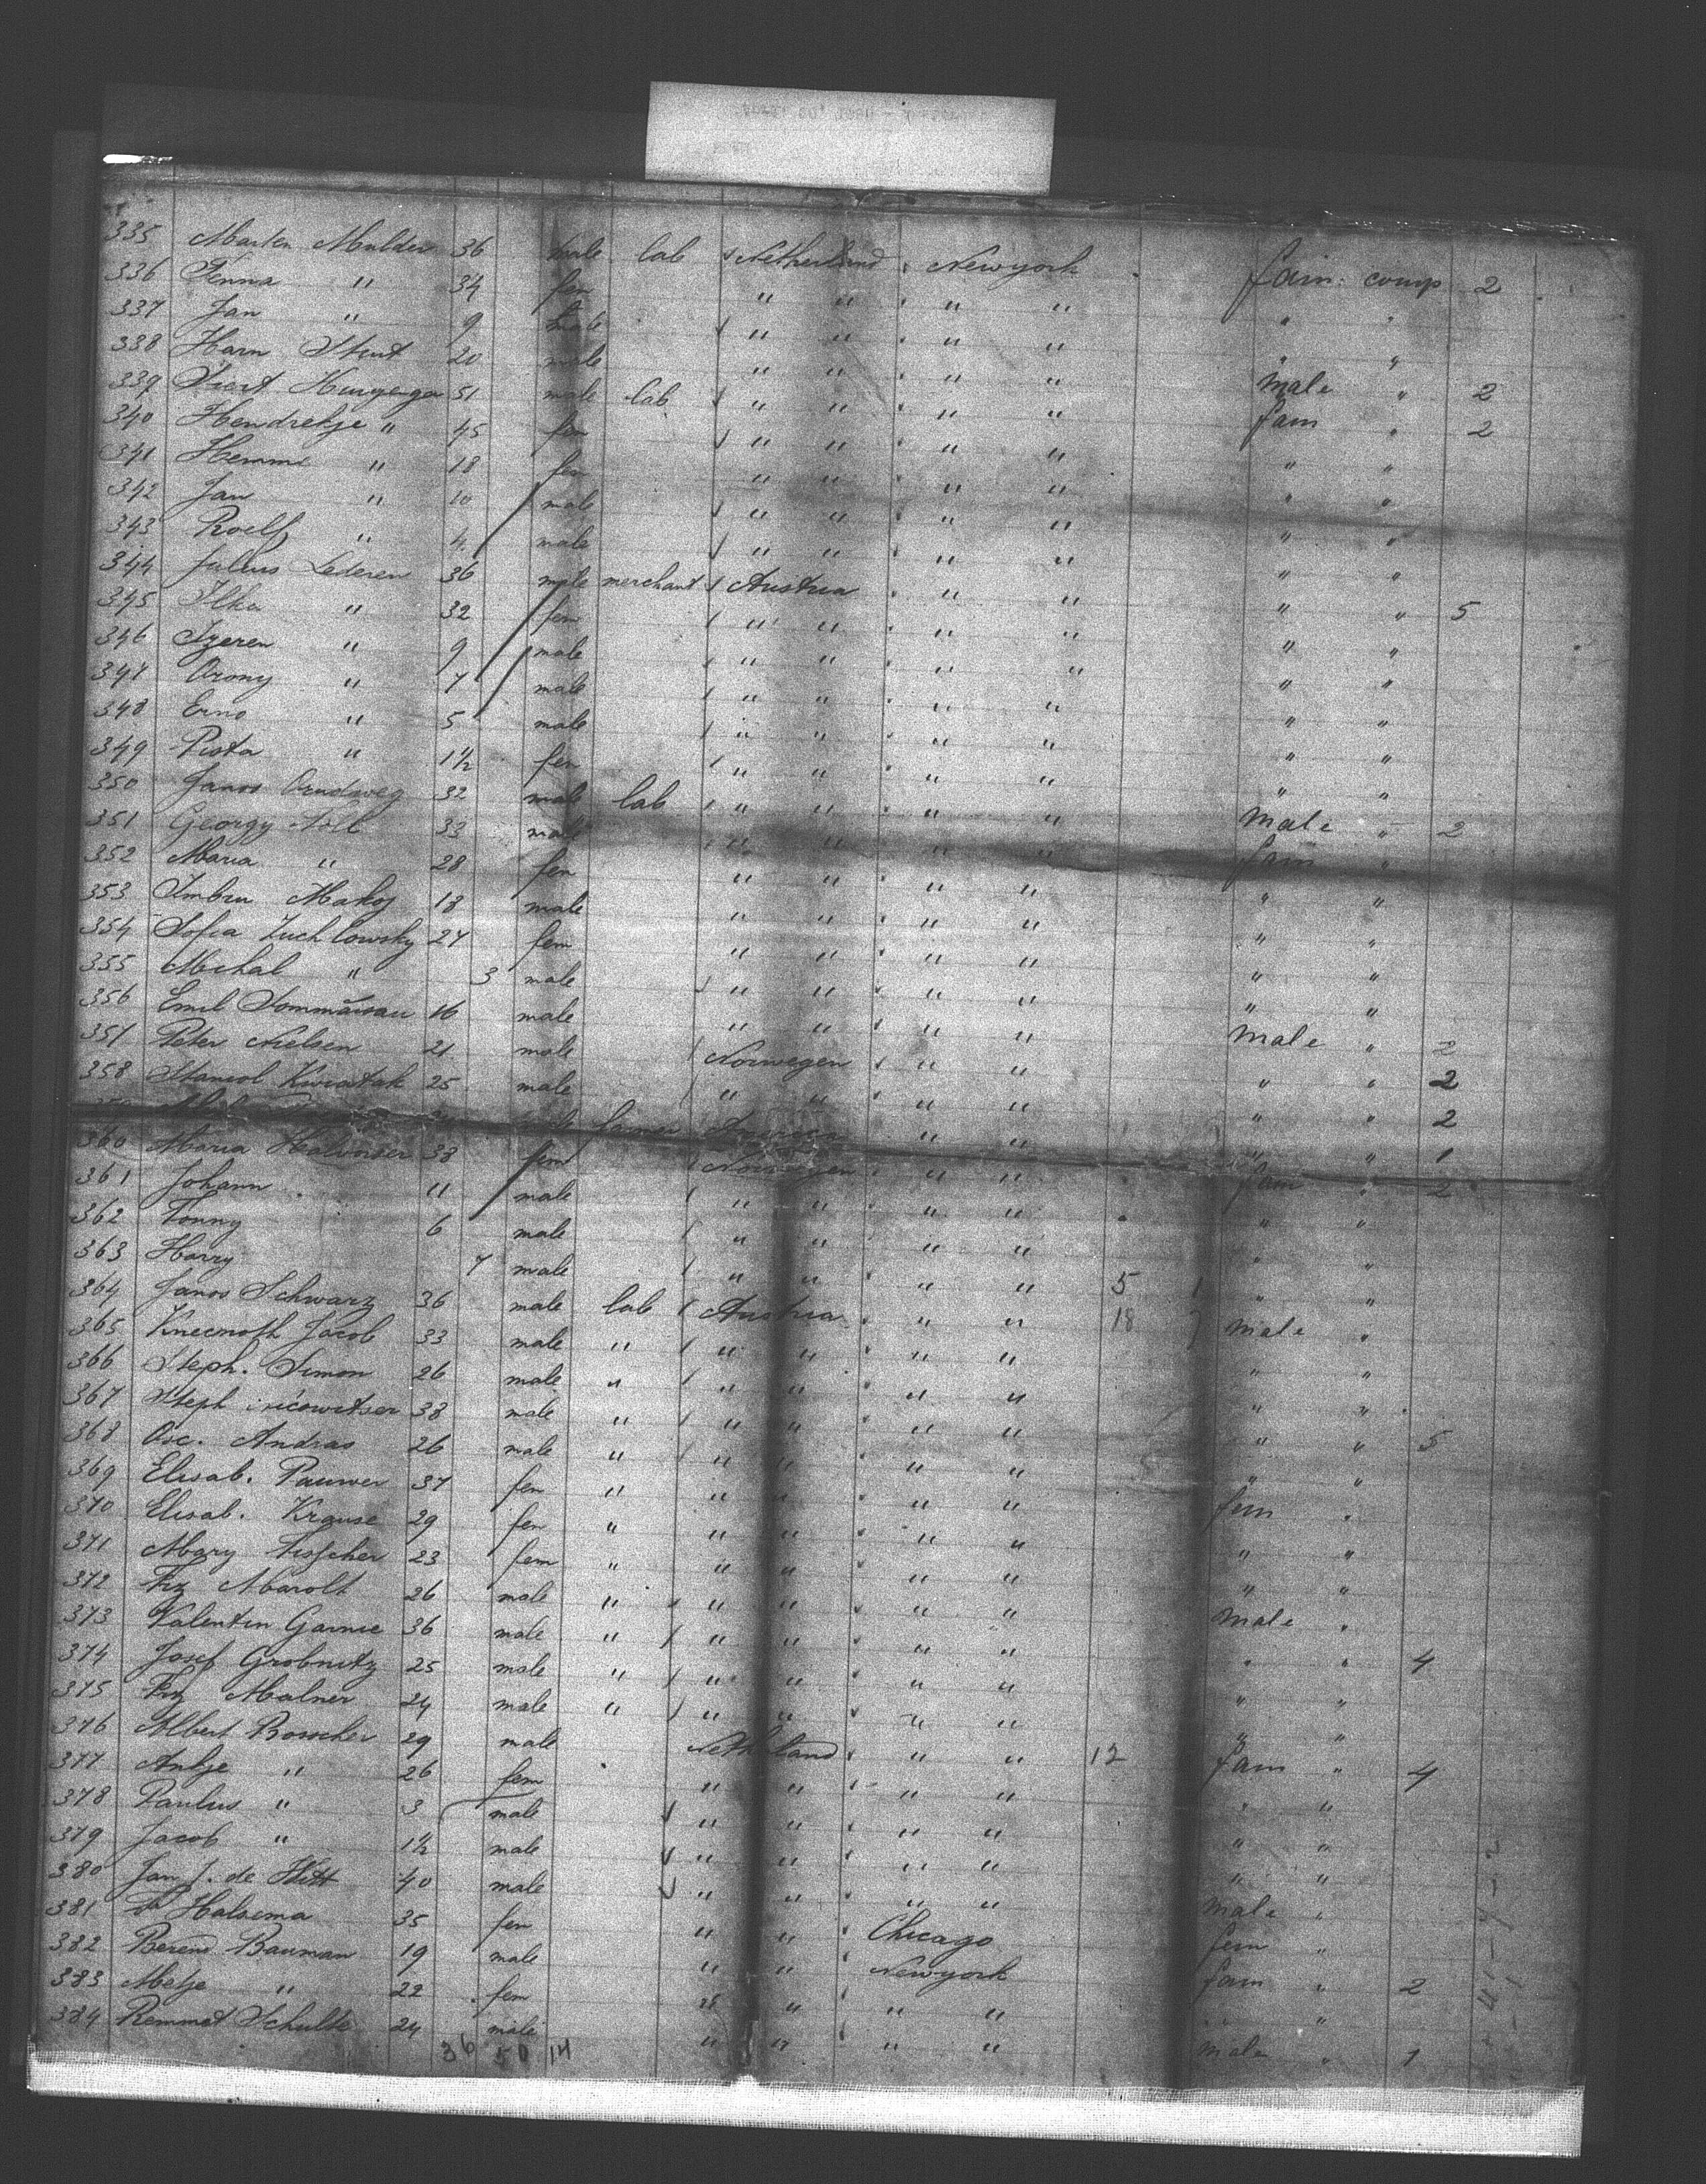 335 Marten Mulder 36 male lab Netherland Newyork fam: comp 2
336 Fenna " 34 fem " " " " " "
337 Jan " 9 male " " " " " "
338 Harm 20 male " " " " male " 2
339 51 male lab " " " " fam " 2
340 Hendrekje " 45 fem " " " " " "
341 Hemmi " 18 fem " " " " " "
342 Jan " 10 male " " " " " "
343 Roelf " 4 male " " " " " "
344 Julius Lederen 36 male merchant Austria " " " " 5
345 Ilka " 32 fem " " " " " "
346 " 9 male " " " " " "
347 " 7 male " " " " " "
348 Erno " 5 male " " " " " "
349 Pista " 1½ fem " " " " " "
350 Janos 32 male lab " " " " male " 2
351 Georgy 33 male " " " " fam "
352 Maria " 28 fen " " " " " "
353 Makoj 18 male " " " " " "
354 Sofia Zuchlowsky 27 fem " " " " " "
355 Michal " 3 male " " " " " "
356 Emil 16 male " " " " male " 2
357 Peter Nielsen 21 male Norwegen " " " " 2
358 Kwiatak 25 male " " " " " " 2
359 farmer America " " " " 1
360 Maria Halvorser 38 fem Norwegen " " fam " 2
361 Johann 11 male " " " " " "
362 Tonny 6 male " " " " " "
363 Harry 7 male " " " " 5 1 " "
364 Janos Schwarz 36 male lab Austria " " 18 male "
365 Jacob 33 male " " " " " " "
366 Steph. Simon 26 male " " " " " " "
367 Steph 38 male " " " " " " " 5
368 Andras 26 male " " " " " " "
369 Elisab. Pauwer 37 fen " " " " " fem "
370 Elisab. Krause 29 fen " " " " " " "
371 Mary Fisscher 23 fem " " " " " " "
372 Frz Marolt 26 male " " " " " male "
373 Valentin Garnie 36 male " " " " " " " 4
374 Josef Grobnitz 25 male " " " " " " "
375 Frz Malner 24 male " " " " " " "
376 Albert Bosscher 29 male Netherland " " 12 fam " 4
377 Antje " 26 fem " " " " " "
378 Paulus " 3 male " " " " " "
379 Jacob " 1½ male " " " " " "
380 Jan J. de Witt 40 male " " " " male "
381 Halsema 35 fen " " Chicago fem "
382 Berend Bauman 19 male " " Newyork fam " 2
383 Metje " 22 fen " " " " " "
384 Remmet Schulte 24 male " " " " male " 1
36 50 14